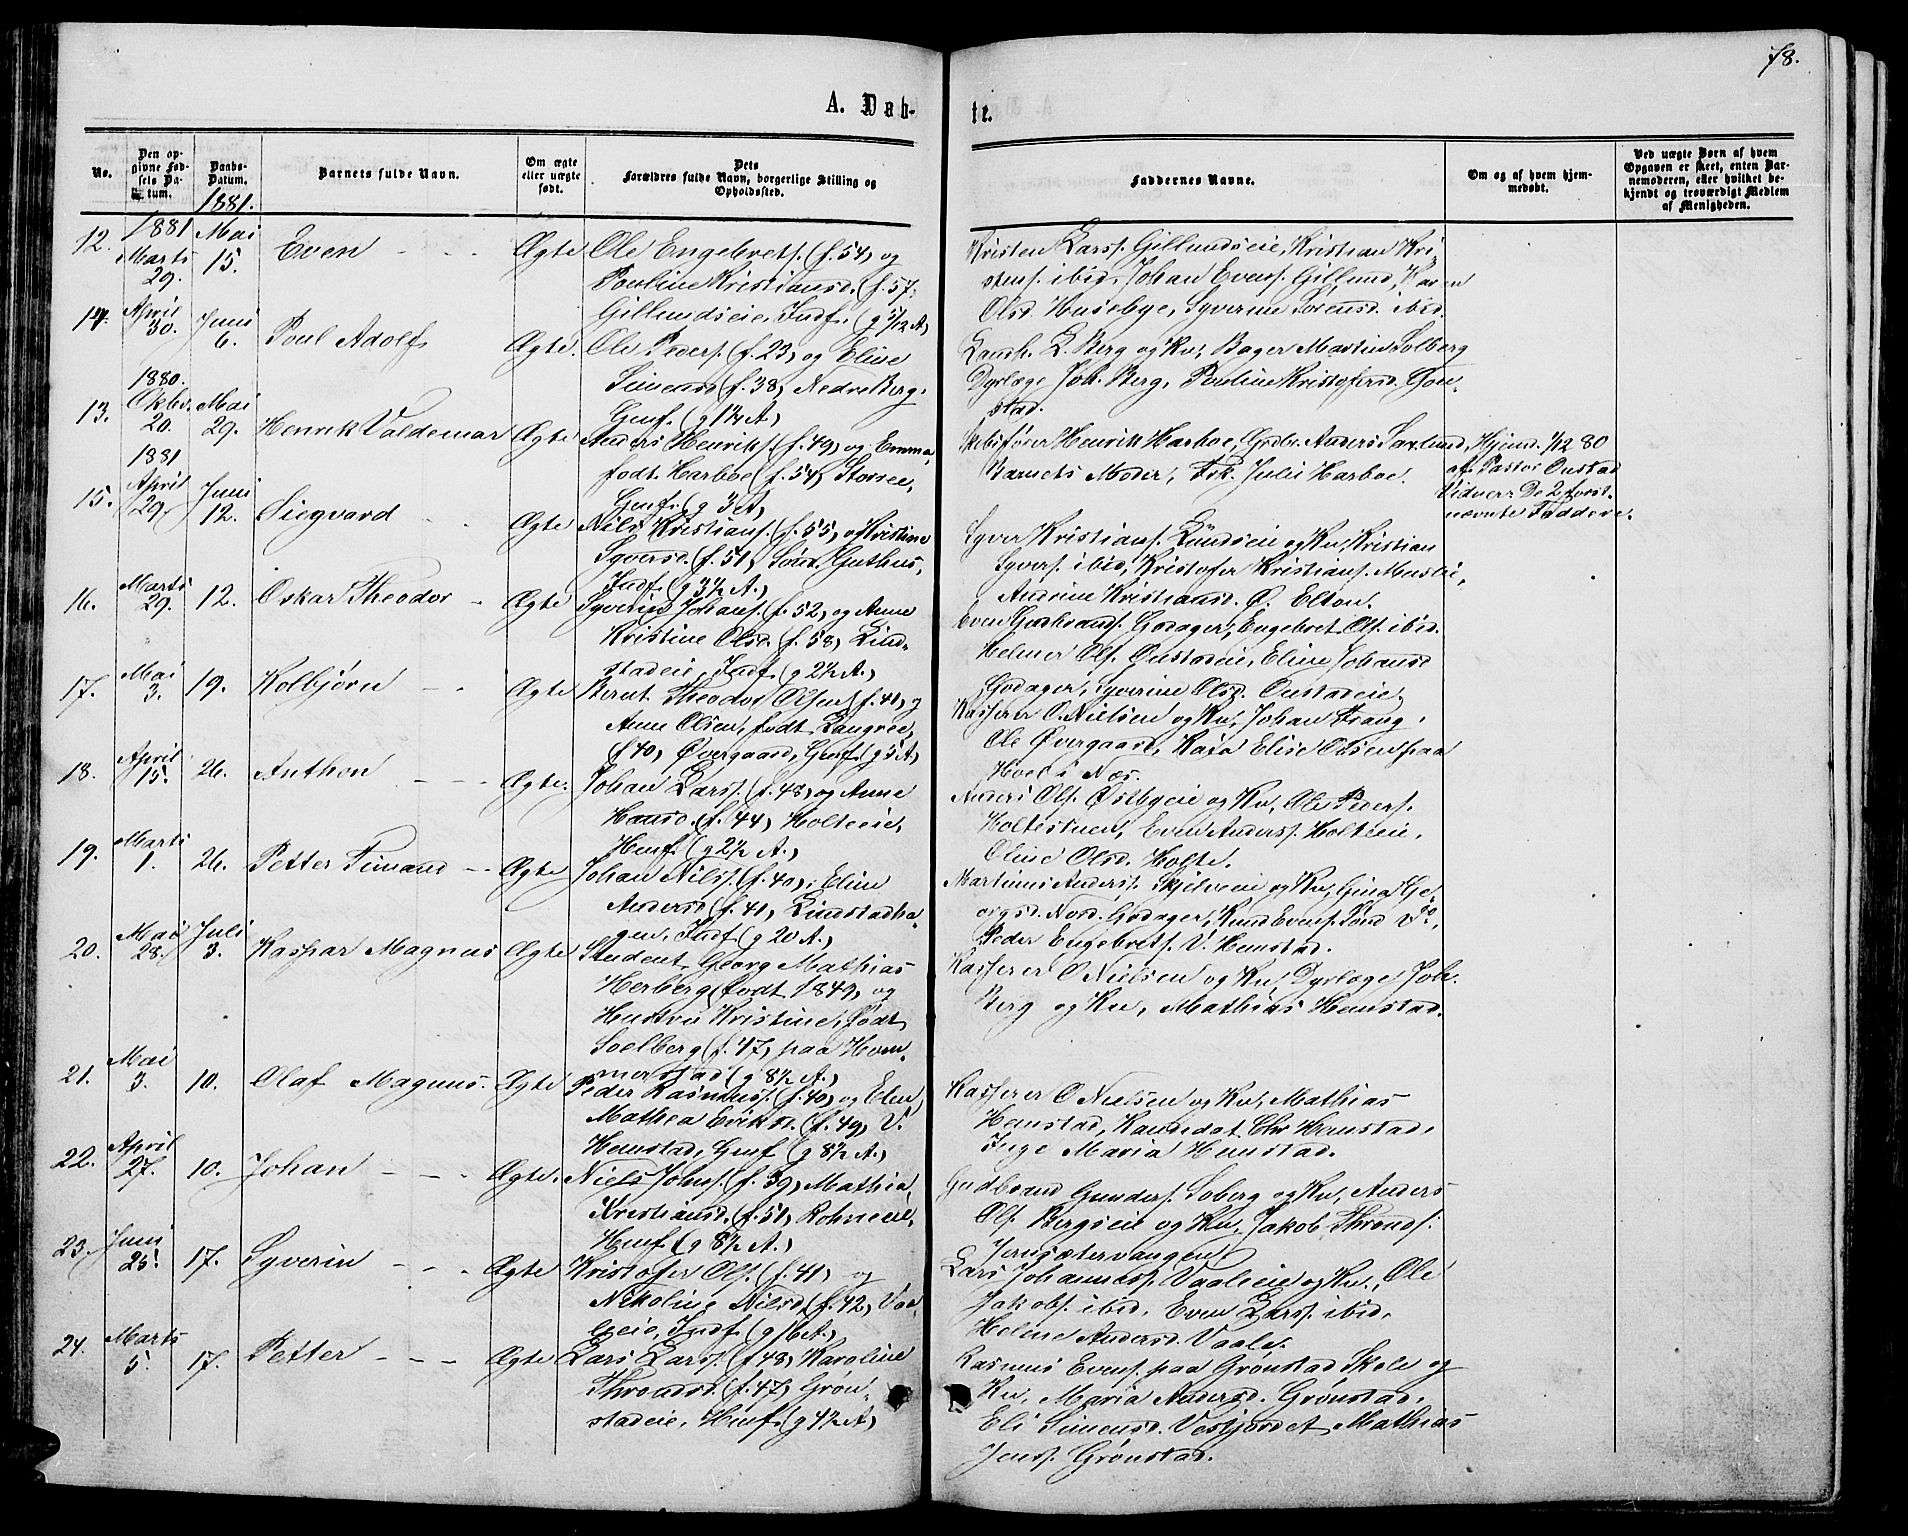 78.
A. Døb-
te.
No.
Den op-
givne Fød-
sels Da-
tum.
Daabs-
Datum.
1881.
Barnets fulde Navn.
Om ægte
eller uægte
født.
Dets
Forældres fulde Navn, borgerlige Stilling og
Opholdssted.
Faddernes Navne.
Om og af hvem hjem-
medøbt.
Ved uægte Børn af hvem
Opgaven er skeet, enten Bar-
nemoderen, eller hvilket be-
kjendt og troværdigt Medlem
af Menigheden.
12.
1881
Marts
29.
Mai
15.
Even
Ægte
Ole Engebrets. (f. 54) og
Pauline Kristiansd. (f. 57,
Gillundseie, Indf. (g 5/12 A)
Kristen Lars. Gillundseie, Kristian Kri-
stens. ibid., Johan Evens. Gillund, Karen
Olsd. Huseby, Syverine Sørensd. ibid.
14.
April
30.
Juni
6.
Poul Adolf
Ægte.
Ole Peders. (f. 23) og Eline
Simensd (f. 38) Nedre Berg,
Gmf. (g 1¼ A)
Landh. L. Berg og Ku, Bager Martin Solberg
Dyrlæge Joh. Berg, Pauline Kristofersd. Gon-
stad.
13.
1880.
Oktbr.
20.
Mai
29.
Henrik Valdemar
Ægte
Anders Henriks. (f. 49) og Emma,
født Harboe (f. 54) Storsee,
Gmf. (g 3 A)
Skibsfører Henrik Harboe, Gbr. Anders Saxlund,
Barnets Moder, Frk. Julie Harboe.
Hjemd. 1/12 80
af Pastor Onstad
Vidner: De 2 først-
nævnte Faddere.
15.
1881
April
29.
Juni
12.
Siegvard
Ægte
Nils Kristians. (f. 55) og Kristine
Syversd. (f. 51) Søndr. Guthus,
Indf. (g 3½ A.)
Syver Kristians. Lundseie og Ku, Kristian
Syvers. ibid, Kristofer Kristians. Muslie,
Andrine Kristiansd. Ø. Elton.
16.
Marts
29.
12.
Oskar Theodor
Ægte
Syverius Johans. (f. 52) og Anne
Kristine Olsd. (f. 58) Lind-
stadeie, Indf. (g 2½ A.)
Even Gudbrands. Godager, Engebret Ols. ibid.
Helmer Ols. Onstadeie, Eline Johansd
Godager, Syverine Olsd. Onstadeie,
17.
Mai
3.
19.
Kolbjørn
Ægte
Bernt Theodor Olsen (f. 41) og
Anne Olsen, født Langsee,
(f. 40) Øvergaard, Gmf. (g 5 A)
Kasserer O. Nielsen og Ku, Johan Frang,
Ole Øvergaard, Kaja Elise Olsen paa
Hoel i Næs.
18.
April
15.
26.
Anthon
Ægte.
Johan Lars. (f. 48) og Anne
Hansd. (f. 44) Holteeie,
Hmf. (g 2½ A.)
Anders Ols. Østbyeie og Ku, Ole Peders.
Holtestuen, Even Anders. Holteie,
Oline Olsd. Holte.
19.
Marts
1.
26.
Petter Timand
Ægte
Johan Nils. (f. 40), Eline
Andersd (f. 41) Lindstadha-
gen, Indf. (g 20 A.)
Martinus Anders. Skjelveie og Ku, Gina Ge-
orgsd. Nord. Godager, Knud Evens. Sønd. Do.
Peder Engebrets. V. Hemstad.
20.
Mai
28.
Juli
3.
Kaspar Magnus
Ægte
Student Georg Mathias
Herberg (født 1849) og
Hustru Kristine, født
Soelberg (f. 47) paa Hom-
merstad (g 8½ A.)
Kasserer O Nielsen og Ku, Dyrlæge Joh.
Berg og Ku, Mathias Hemstad.
21.
Mai
3.
10.
Olaf Magnus.
Ægte
Peder Rasmus. (f. 40) og Elen
Mathea Eriksd. (f. 49) V.
Hemstad, Gmf (g 8½ A.)
Kasserer O Nielsen og Ku, Mathias
Hemstad, Kandidat Chr Hemstad,
Inge Maria Hemstad.
22.
April
27.
10.
Johan
Ægte.
Niels Johns. (f. 39) Mathia,
Kristiansd. (f. 51) Rohneeie,
Hmf. (g 8½ A.)
Gudbrand Gunders. Soberg og Ku, Anders
Ols. Bergseie og Ku, Jakob Thronds.
Jensætervangen
23.
Juni
25.
17.
Syverin
Ægte
Kristofer Ols. (f. 41) og
Nikoline Nilsd. (f. 42) Vaa-
leeie, Indf. (g 16 A.)
Lars Johannes. Vaaleeie og Ku., Ole
Jakobs. ibid., Even Lars. ibid,
Helene Andersd. Vaale.
24.
Marts
5.
17.
Petter
Ægte
Lars Lars. (f. 48) Karoline
Throndsd. (f. 47) Grøn-
stadeie, Hmf. (g 4½ A)
Rasmus Evens. paa Grønstad Skole og
Ku, Maria Andersd. Grønstad,
Eli Simensd. Vestjordet Mathias
Jens. Grønstad.